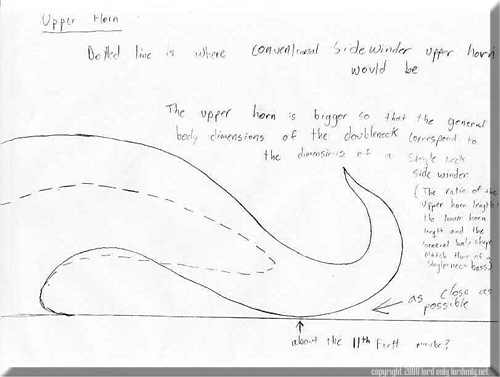 Upper Horn
Dotted line is where conventional Sidewinder upper horn
would be
The upper horn is bigger so that the general
body dimensions of the doubleneck correspond to
the dimensions of a single neck
side winder
(The ratio of the
upper horn length
the lower horn
length and the
general body shape
match that of a
single-neck bass)
as close as
possible
about the 11th Fret
copyright 2000 lord only lordonly.net